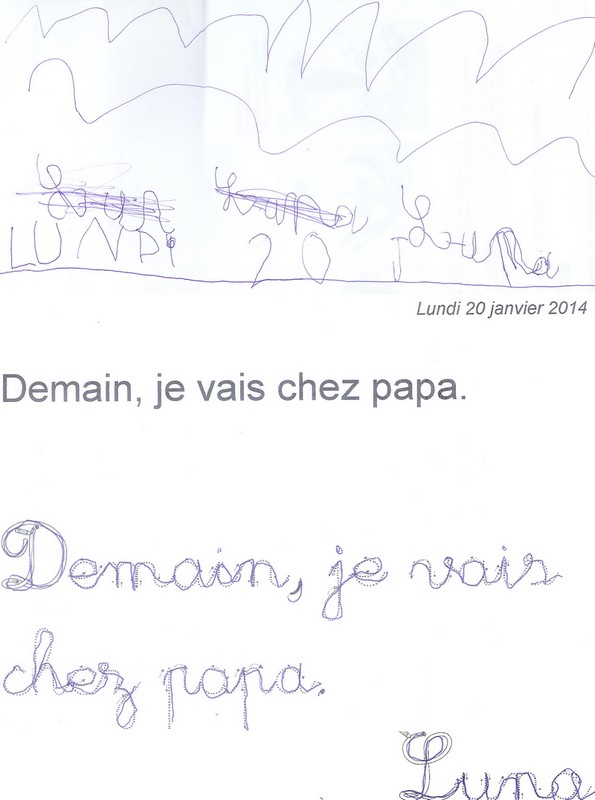 Luna Luna Luna
LUNDi 20 J
Lundi 20 janvier 2014
Demain, je vais chez papa.
Demain, je vais
chez papa.
Luna